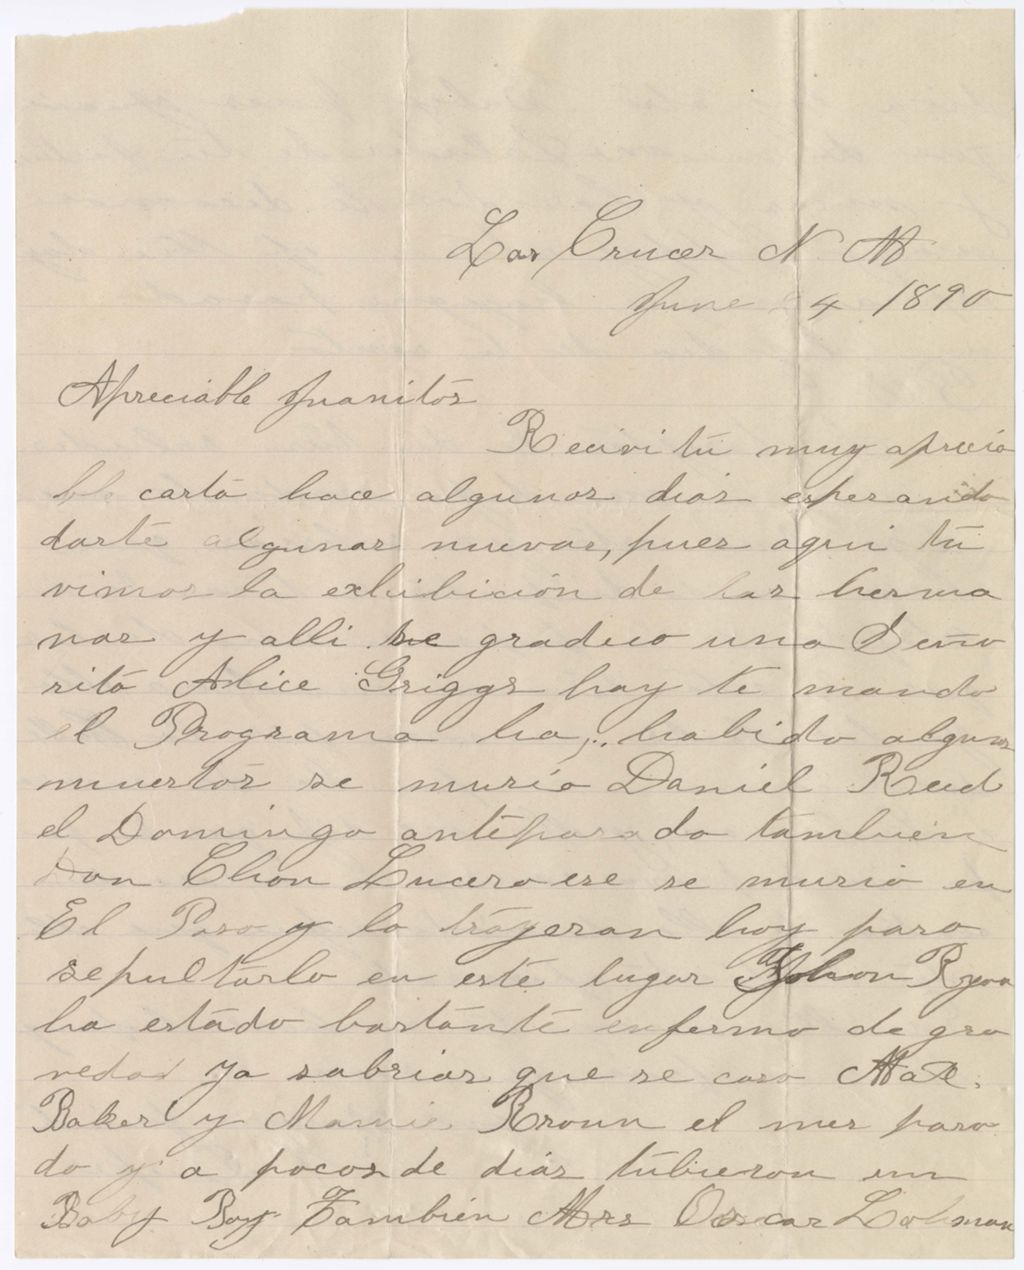 Las Cruces N. M.
June 4 1890
Apreciable Juanitos
Recivi tú muy aprecia
ble carta hace algunos dias esperando
darte algunas nuevas, pues aqui tu
vimos la exhibición de las herma
nas y alli se graduo una Seño
rita Alice Griggs hay te mando
el Programa ha, habido algunos
muertos se murio Daniel Reed
el Domingo antepasado tambien
Don Lucero ese se murio en
El Paso y lo trayeran hoy para
sepultarlo en este lugar
ha estado bastante enfermo de gra
vedad ya sabrias que se caso
Baker y Mamie Broun el mes pasa
do y a pocos de dias tubieron un
Baby Boy Tambien Mrs Oscar Lohman